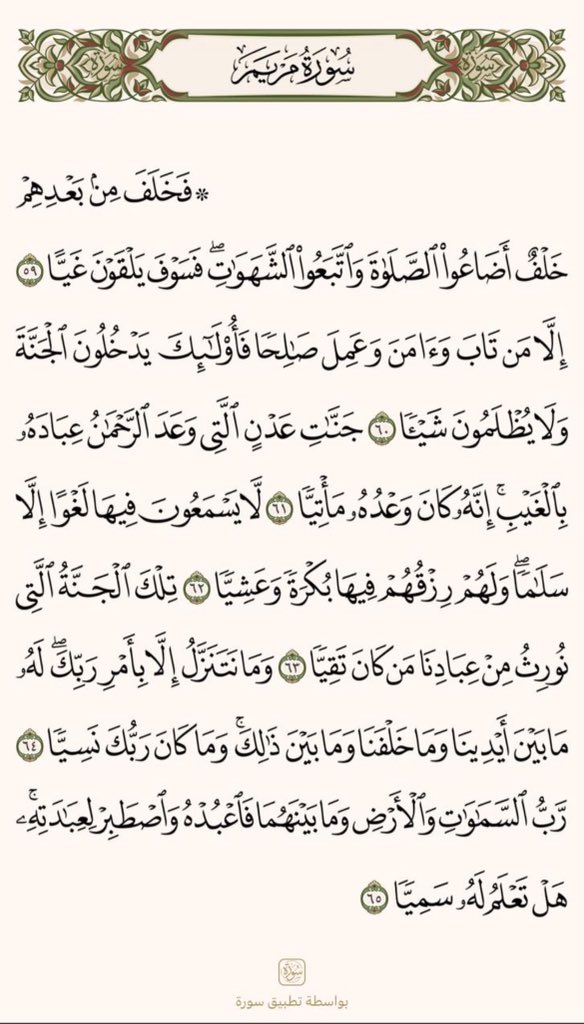 سُورَةُ مَرْيَمَ
۞ فَخَلَفَ مِنۢ بَعْدِهِمْ
خَلْفٌ أَضَاعُوا۟ ٱلصَّلَوٰةَ وَٱتَّبَعُوا۟ ٱلشَّهَوَٰتِ ۖ فَسَوْفَ يَلْقَوْنَ غَيًّا ٥٩
إِلَّا مَن تَابَ وَءَامَنَ وَعَمِلَ صَٰلِحًا فَأُو۟لَٰٓئِكَ يَدْخُلُونَ ٱلْجَنَّةَ
وَلَا يُظْلَمُونَ شَيْـًٔا ٦٠ جَنَّٰتِ عَدْنٍ ٱلَّتِى وَعَدَ ٱلرَّحْمَٰنُ عِبَادَهُۥ
بِٱلْغَيْبِ ۚ إِنَّهُۥ كَانَ وَعْدُهُۥ مَأْتِيًّا ٦١ لَّا يَسْمَعُونَ فِيهَا لَغْوًا إِلَّا
سَلَٰمًا ۖ وَلَهُمْ رِزْقُهُمْ فِيهَا بُكْرَةً وَعَشِيًّا ٦٢ تِلْكَ ٱلْجَنَّةُ ٱلَّتِى
نُورِثُ مِنْ عِبَادِنَا مَن كَانَ تَقِيًّا ٦٣ وَمَا نَتَنَزَّلُ إِلَّا بِأَمْرِ رَبِّكَ ۖ لَهُۥ
مَا بَيْنَ أَيْدِينَا وَمَا خَلْفَنَا وَمَا بَيْنَ ذَٰلِكَ ۚ وَمَا كَانَ رَبُّكَ نَسِيًّا ٦٤
رَّبُّ ٱلسَّمَٰوَٰتِ وَٱلْأَرْضِ وَمَا بَيْنَهُمَا فَٱعْبُدْهُ وَٱصْطَبِرْ لِعِبَٰدَتِهِۦ ۚ
هَلْ تَعْلَمُ لَهُۥ سَمِيًّا ٦٥
سورة
بواسطة تطبيق سورة